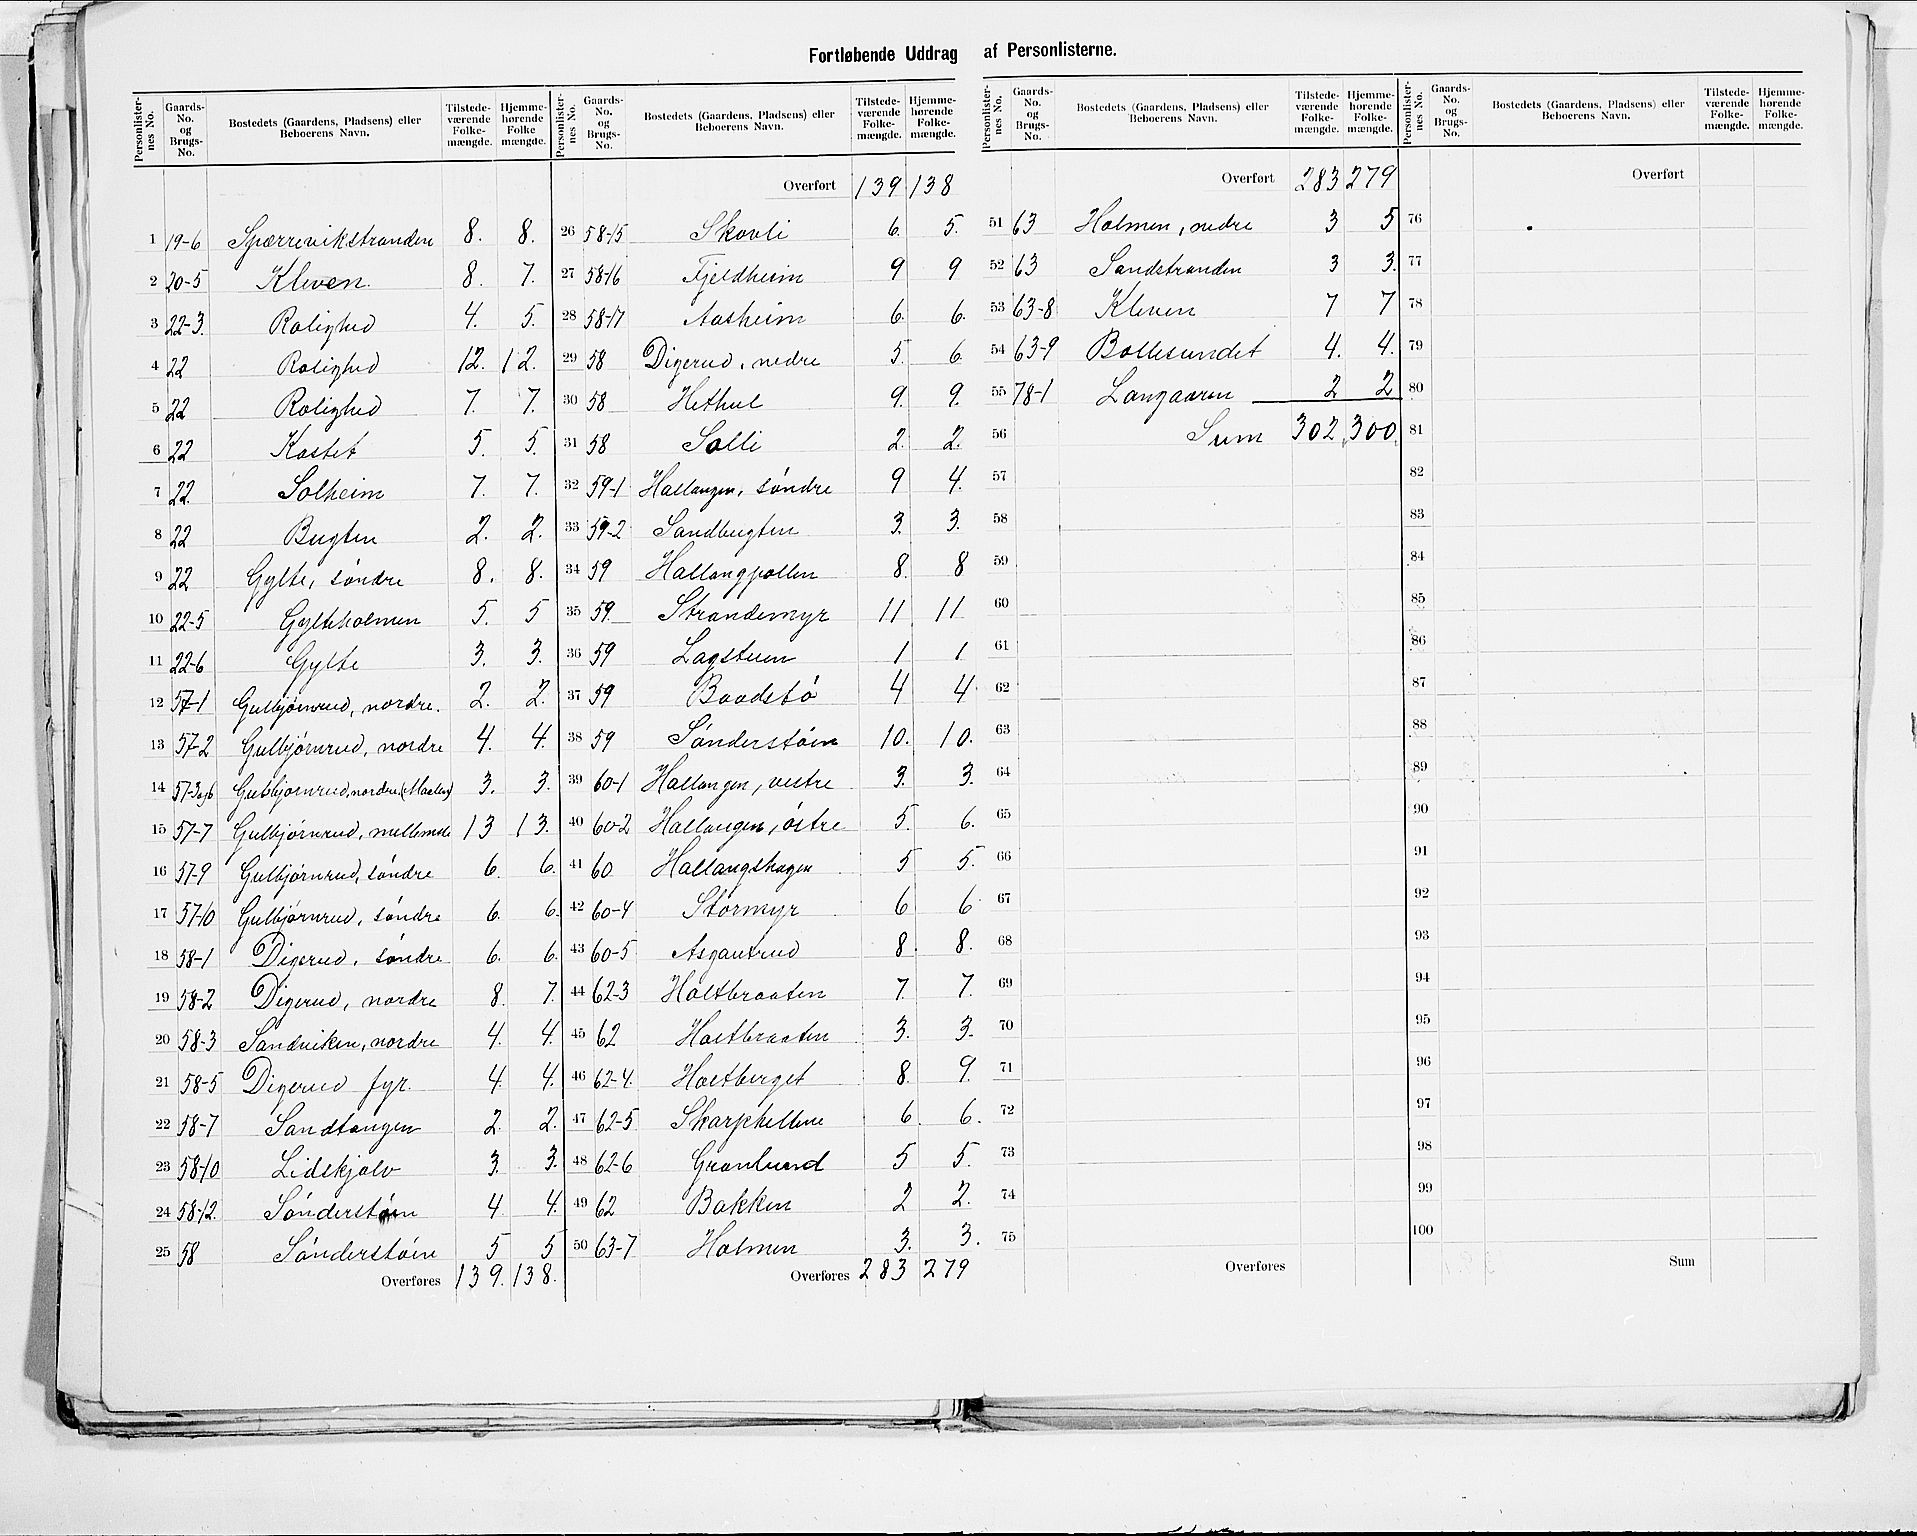 Fortløbende Uddrag af Personlisterne.
Personlister-nes No. | Gaards-No. og Brugs-No. | Bostedets (Gaardens, Pladsens) eller Beboerens Navn. | Tilstede-værende Folke-mængde. | Hjemme-hørende Folke mængde.
1 19-6 Spærrevikstranden 8. 8.
2 20-5 Kleven. 8. 7.
3 22-3. Rolighed 4. 5.
4 22 Rolighed 12. 12.
5 22 Rolighed 7. 7.
6 22 Kastet 5. 5.
7 22 Solheim 7. 7.
8 22 Bugten 2. 2.
9 22 Gylte, søndre 8. 8.
10 22-5 Gylteholmen 5. 5
11 22-6 Gylte 3. 3.
12 57-1 Gulbjørnrud, nordre. 2. 2.
13 57-2 Gulbjørnrud, nordre 4. 4.
14 57-3og6 Gulbjørnrud, nordre (Maalen) 3. 3.
15 57-7 Gulbjørnrud, mellemste 13 13.
16 57-9 Gulbjørnrud, søndre 6. 6.
17 57-10 Gulbjørnrud, søndre 6. 6.
18 58-1 Digerud, søndre 6. 6.
19 58-2 Digerud, nordre 8. 7.
20 58-3 Sandviken, nordre 4. 4.
21 58-5 Digerud fyr. 4. 4.
22 58-7 Sandtangen 2. 2.
23 58-10 Lidskjalv 3. 3.
24 58-12. Sønderstøen 4. 4.
25 58 Sønderstøen 5 5
Overføres 139. 138.
Personlister-nes No. | Gaards-No. og Brugs-No. | Bostedets (Gaardens, Pladsens) eller Beboerens Navn. | Tilstede-værende Folke-mængde. | Hjemme-hørende Folke-mængde.
Overført 139 138
26 58-15 Skovli 6. 5.
27 58-16 Fjeldheim 9 9
28 58-17 Aasheim 6. 6.
29 58 Digerud, nedre 5. 6.
30 58 Hethul 9. 9.
31 58 Solli 2. 2.
32 59-1 Hallangen, søndre 9 4.
33 59-2 Sandbugten 3. 3.
34 59 Hallangpollen 8. 8
35 59. Strandemyr 11 11
36 59 Lagsteen 1 1
37 59 Baadstø 4 4
38 59 Sønderstøen 10. 10.
39 60-1 Hallangen, vestre 3. 3.
40 60-2 Hallangen, østre 5. 6.
41 60 Hallangshagen 5 5.
42 60-4 Størmyr 6 6
43 60-5 Asgautrud 8. 8.
44 62-3 Holtbraaten 7. 7.
45 62 Holtbraaten 3. 3.
46 62-4. Holtberget 8. 9.
47 62-5 Skarpkellene 6. 6.
48 62-6 Granlund 5 5.
49 62 Bakken 2 2.
50 63-7 Holmen 3. 3.
Overføres 283 279
Personlister-nes No. | Gaards-No. og Brugs-No. | Bostedets (Gaardens, Pladsens) eller Beboerens Navn. | Tilstede-værende Folke-mængde. | Hjemme-hørende Folke-mængde.
Overført 283 279
51 63 Holmen, nedre 3 5
52 63 Sandstranden 3 3.
53 63-8 Kleven 7 7
54 63-9 Ballesundet 4. 4.
55 78-1 Langaaren 2 2
56 Sum 302 300.
57
58
59
60
61
62
63
64
65
66
67
68
69
70
71
72
73
74
75
Overføres
Personlister-nes No. | Gaards-No. og Brugs-No. | Bostedets (Gaardens, Pladsens) eller Beboerens Navn. | Tilstede-værende Folke-mængde. | Hjemme-hørende Folke-mængde.
Overført
76
77
78
79
80
81
82
83
84
85
86
87
88
89
90
91
92
93
94
95
96
97
98
99
100
Sum